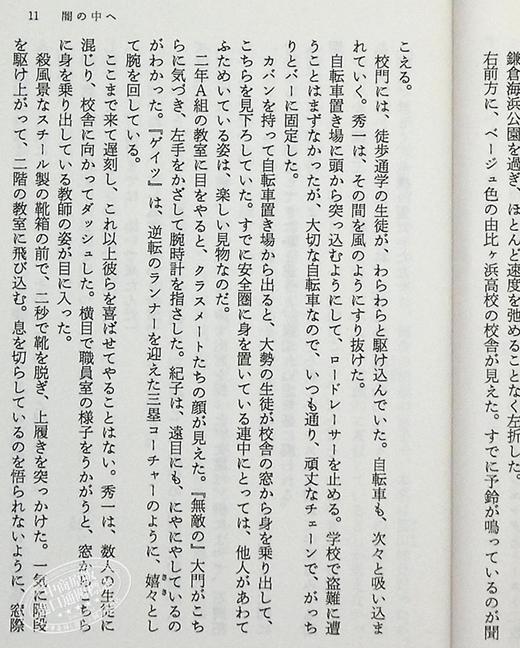 鎌倉海浜公園を過ぎ、ほとんど速度を弛めることなく左折した。
右前方に、ベージュ色の由比ヶ浜高校の校舎が見えた。すでに予鈴が鳴っているのが聞
11 闇の中へ
こえる。
校門には、徒歩通学の生徒が、わらわらと駆け込んでいた。自転車も、次々と吸い込ま
れていく。秀一は、その間を風のようにすり抜けた。
自転車置き場に頭から突っ込むようにして、ロードレーサーを止める。学校で盗難に遭
うことはまずなかったが、大切な自転車なので、いつも通り、頑丈なチェーンで、がっち
りとバーに固定した。
カバンを持って自転車置き場から出ると、大勢の生徒が校舎の窓から身を乗り出して、
こちらを見下ろしていた。すでに安全圏に身を置いている連中にとっては、他人があわて
ふためいている姿は、楽しい見物なのだ。
二年A組の教室に目をやると、クラスメートたちの顔が見えた。『無敵の』大門がこち
らに気づき、左手をかざして腕時計を指さした。紀子は、遠目にも、にやにやしているの
がわかった。『ゲイツ』は、逆転のランナーを迎えた三塁コーチャーのように、嬉々とし
て腕を回している。
ここまで来て遅刻し、これ以上彼らを喜ばせてやることはない。秀一は、数人の生徒に
混じり、校舎に向かってダッシュした。横目で職員室の様子をうかがうと、窓からこちら
に身を乗り出している教師の姿が目に入った。
殺風景なスチール製の靴箱の前で、二秒で靴を脱ぎ、上履きを突っかけた。一気に階段
を駆け上がって、二階の教室に飛び込む。息を切らしているのを悟られないように、窓際